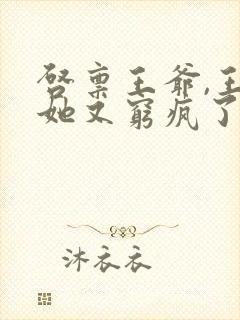 启禀王爷,王
她又穷疯了
沐衣衣